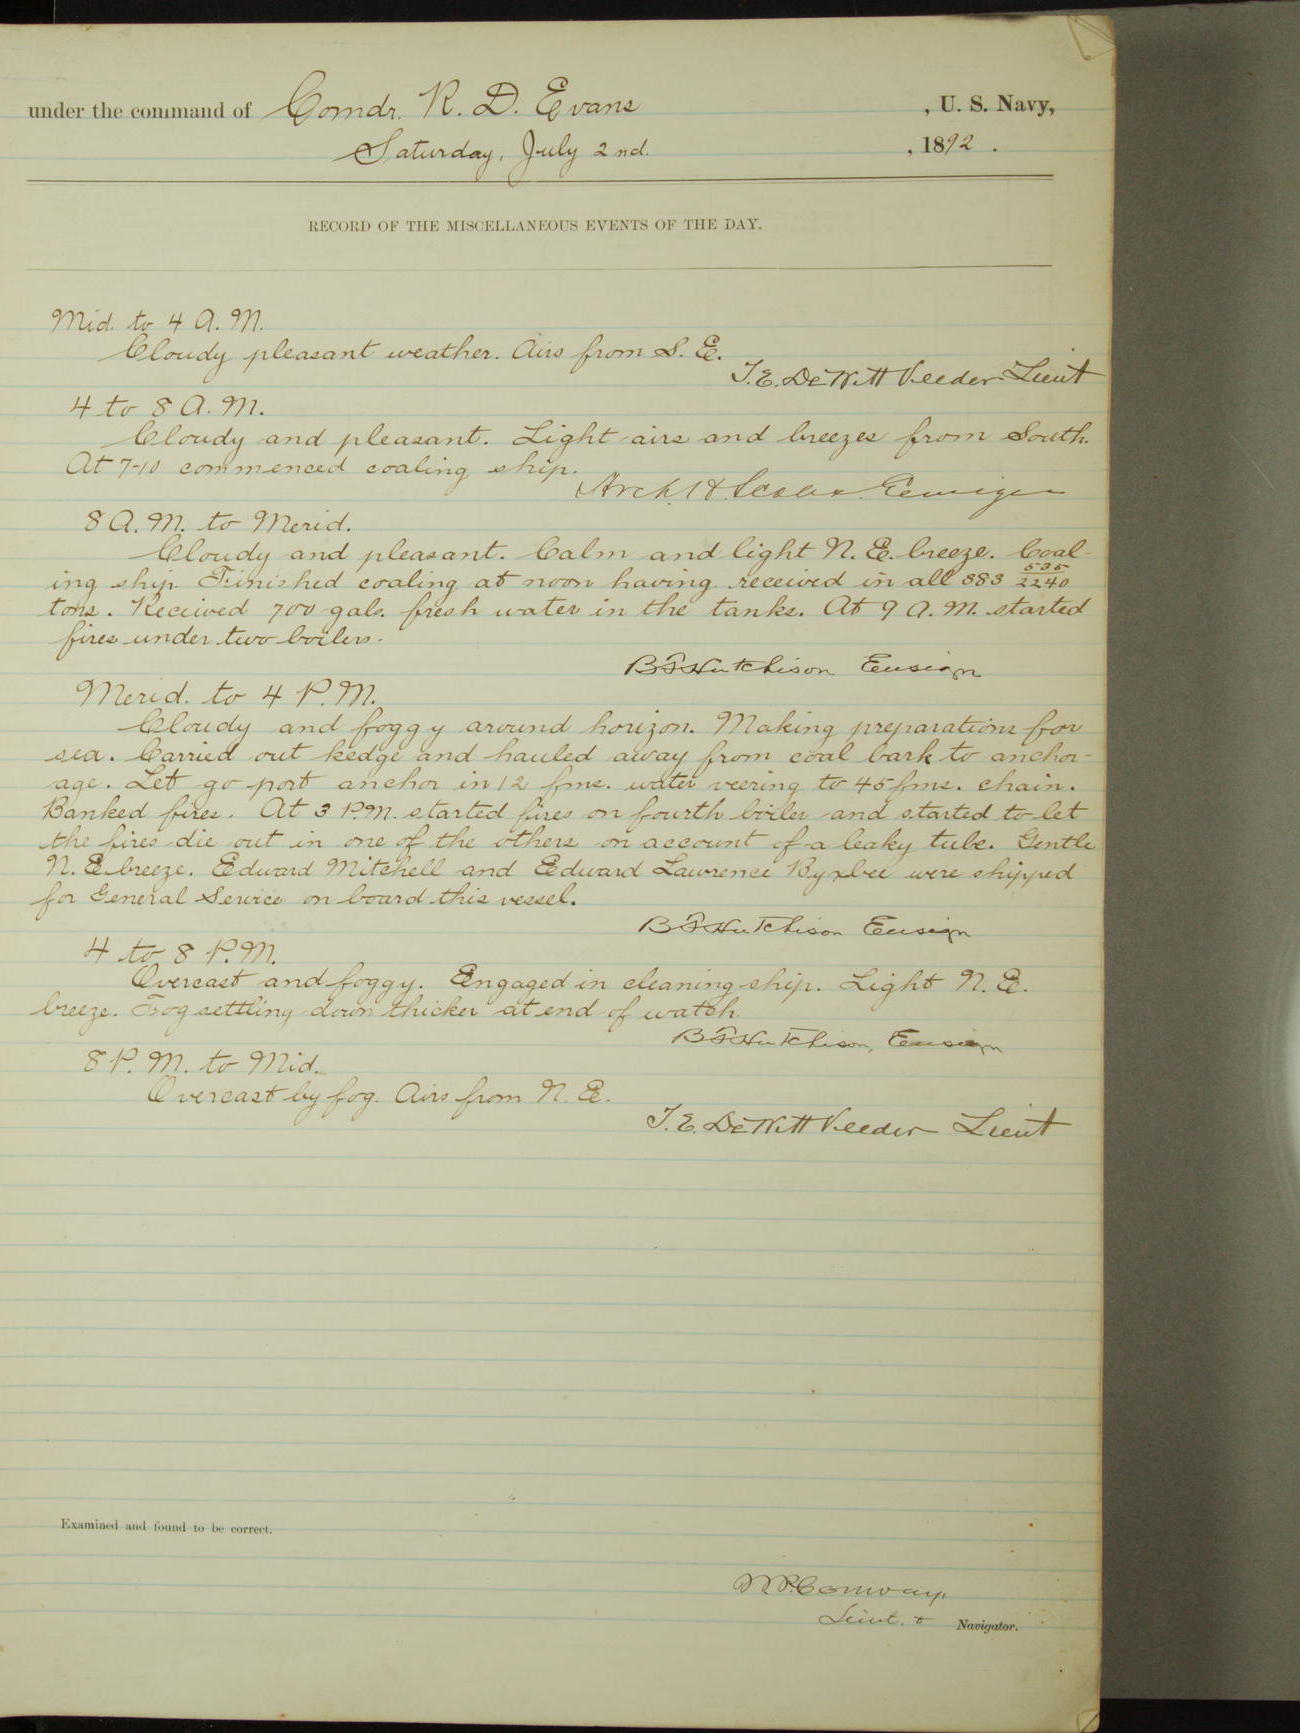 under the command of Comdr. R. D. Evans, U. S. Navy,
Saturday, July 2nd., 1892.
RECORD OF THE MISCELLANEOUS EVENTS OF THE DAY.
Mid. to 4 A.M.
Cloudy pleasant weather. Airs from S. E.
T. E. DeWitt Veeder Lieut
4 to 8 A.M.
Cloudy and pleasant. Light airs and breezes from South.
At 7-10 commenced coaling ship.
Arch. H. Scales. Ensign
8 A.M. to Merid.
Cloudy and pleasant. Calm and light N. E. breeze. Coal-
ing ship. Finished coaling at noon having received in all 383 535/2240
tons. Received 700 gals. fresh water in the tanks. At 9 A.M. started
fires under two boilers.
B F Hutchison Ensign
Merid. to 4 P.M.
Cloudy and foggy around horizon. Making preparations for
sea. Carried out kedge and hauled away from coal bark to anchor-
age. Let go port anchor in 12 fms. water veering to 45 fms. chain.
Banked fires. At 3 P.M. started fires on fourth boiler and started to let
the fires die out in one of the others on account of a leaky tube. Gentle
N. E breeze. Edward Mitchell and Edward Lawrence Byxbee were shipped
for General Service on board this vessel.
B F Hutchison Ensign
4 to 8 P.M.
Overcast and foggy. Engaged in cleaning ship. Light N. E.
breeze. Fog settling down thicker at end of watch.
B F Hutchison, Ensign
8 P. M. to Mid.
Overcast by fog. Airs from N. E.
T. E. DeWitt Veeder Lieut
Examined and found to be correct.
W P. Conway.
Lieut. & Navigator.